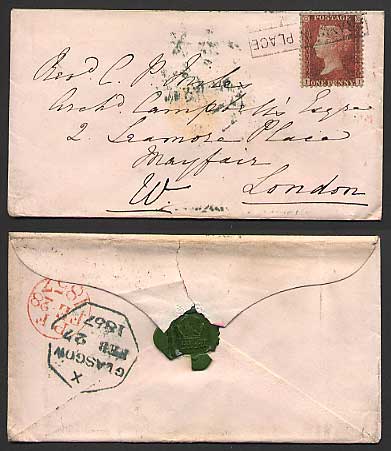 PLACE
POSTAGE
ONE PENNY
Revd C. P.
Archd Campbell's Esqre
2 Seamore Place
Mayfair
W London
GLASGOW
FEB 27
1857
X